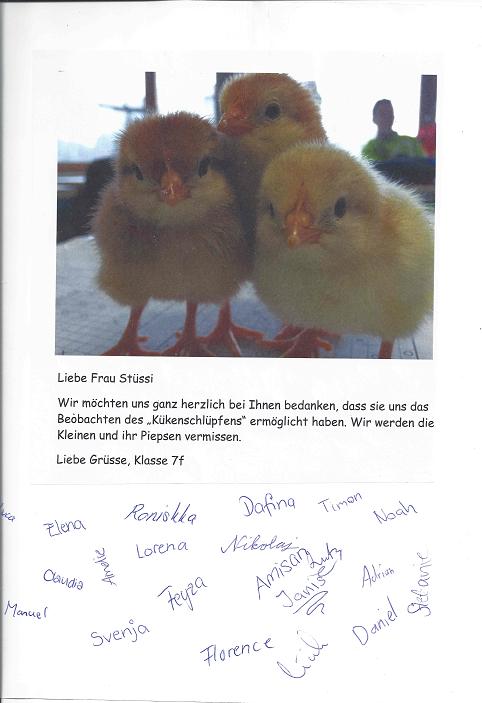 Liebe Frau Stüssi
Wir möchten uns ganz herzlich bei Ihnen bedanken, dass sie uns das
Beobachten des „Kükenschlüpfens“ ermöglicht haben. Wir werden die
Kleinen und ihr Piepsen vermissen.
Liebe Grüsse, Klasse 7f
Elena Roniskka Dafina Timon Noah
Lorena Nikolaj
Claudia Feyza Amisan Janise Adrian Stefanie
Manuel Svenja Florence Daniel